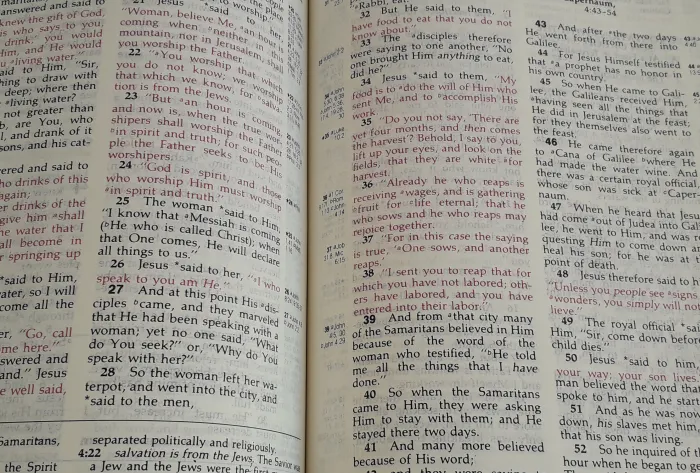 answered and said to
knew the gift of God,
is who says to you,
drink,' you would
Him, and He would
living water."
said to Him, "Sir,
thing to draw with
deep; where then
living water?
not greater than
b, are You, who
l, and drank of it
sons, and his cat-
ered and said to
ho drinks of this
again;
er drinks of the
give him shall
he water that I
all become in
r springing up
said to Him,
ater, so I will
come all the
er, "Go, call
ome here."
swered and
and." Jesus
e well said,
Samaritans,
the Spirit
21 Jesus said
"Woman, believe Me, an hour is
coming when neither in
mountain, nor in Jerusalem, shall
you worship the Father.
22 "You worship that which
you do not know; we worship
that which we know, for
tion is from the Jews.
23 "But an hour is coming,
and now is, when the true wor-
shipers shall worship the Father
in spirit and truth; for such peo-
ple the Father seeks to be His
worshipers.
24 "God is spirit, and those
who worship Him must worship
in spirit and truth."
25 The woman *said to Him,
"I know that Messiah is coming
(He who is called Christ); when
that One comes, He will declare
all things to us."
26 Jesus *said to her, "I who
speak to you am He."
27 And at this point His dis-
ciples came, and they marveled
that He had been speaking with a
woman; yet no one said, "What
do You seek?" or, "Why do You
speak with her?"
28 So the woman left her wa-
terpot, and went into the city, and
*said to the men,
separated politically and religiously.
4:22 salvation is from the Jews. The Savior was
a Jew and the Jews were the first
"Rabbi, eat."
32 But He said to them, "I
have food to eat that you do not
know about."
33 The disciples therefore
were saying to one another, "No
one brought Him anything to eat,
did he?"
34 Jesus *said to them, "My
food is to do the will of Him who
sent Me, and to accomplish His
work.
35 "Do you not say, 'There are
yet four months, and then comes
the harvest'? Behold, I say to you,
lift up your eyes, and look on the
fields, that they are white for
harvest.
36 "Already he who reaps is
receiving wages, and is gathering
fruit for life eternal; that he
who sows and he who reaps may
rejoice together.
37 "For in this case the saying
is true, 'One sows, and another
reaps.'
38 "I sent you to reap that for
which you have not labored; oth-
ers have labored, and you have
entered into their labor."
39 And from that city many
of the Samaritans believed in Him
because of the word of the
woman who testified, "He told
me all the things that I have
done."
40 So when the Samaritans
came to Him, they were asking
Him to stay with them; and He
stayed there two days.
41 And many more believed
because of His word;
42 and they were saying
Capernaum,
4:43-54
43 And after the two days
He went forth from there into
Galilee.
44 For Jesus Himself testified
that a prophet has no honor in
his own country.
45 So when He came to Gali-
lee, the Galileans received Him,
having seen all the things that
He did in Jerusalem at the feast;
for they themselves also went to
the feast.
46 He came therefore again
to Cana of Galilee where
had made the water wine. And
there was a certain royal official,
whose son was sick at Caper-
naum.
47 When he heard that Jesus
had come out of Judea into Gali
lee, he went to Him, and was re
questing Him to come down an
heal his son; for he was at t
point of death.
48 Jesus therefore said to h
"Unless you people see signs
wonders, you simply will not
lieve."
49 The royal official *sa
Him, "Sir, come down before
child dies."
50 Jesus *said to him,
your way; your son lives.
man believed the word that
spoke to him, and he start
51 And as he was now
down, his slaves met him,
that his son was living.
52 So he inquired of
hour when he began t